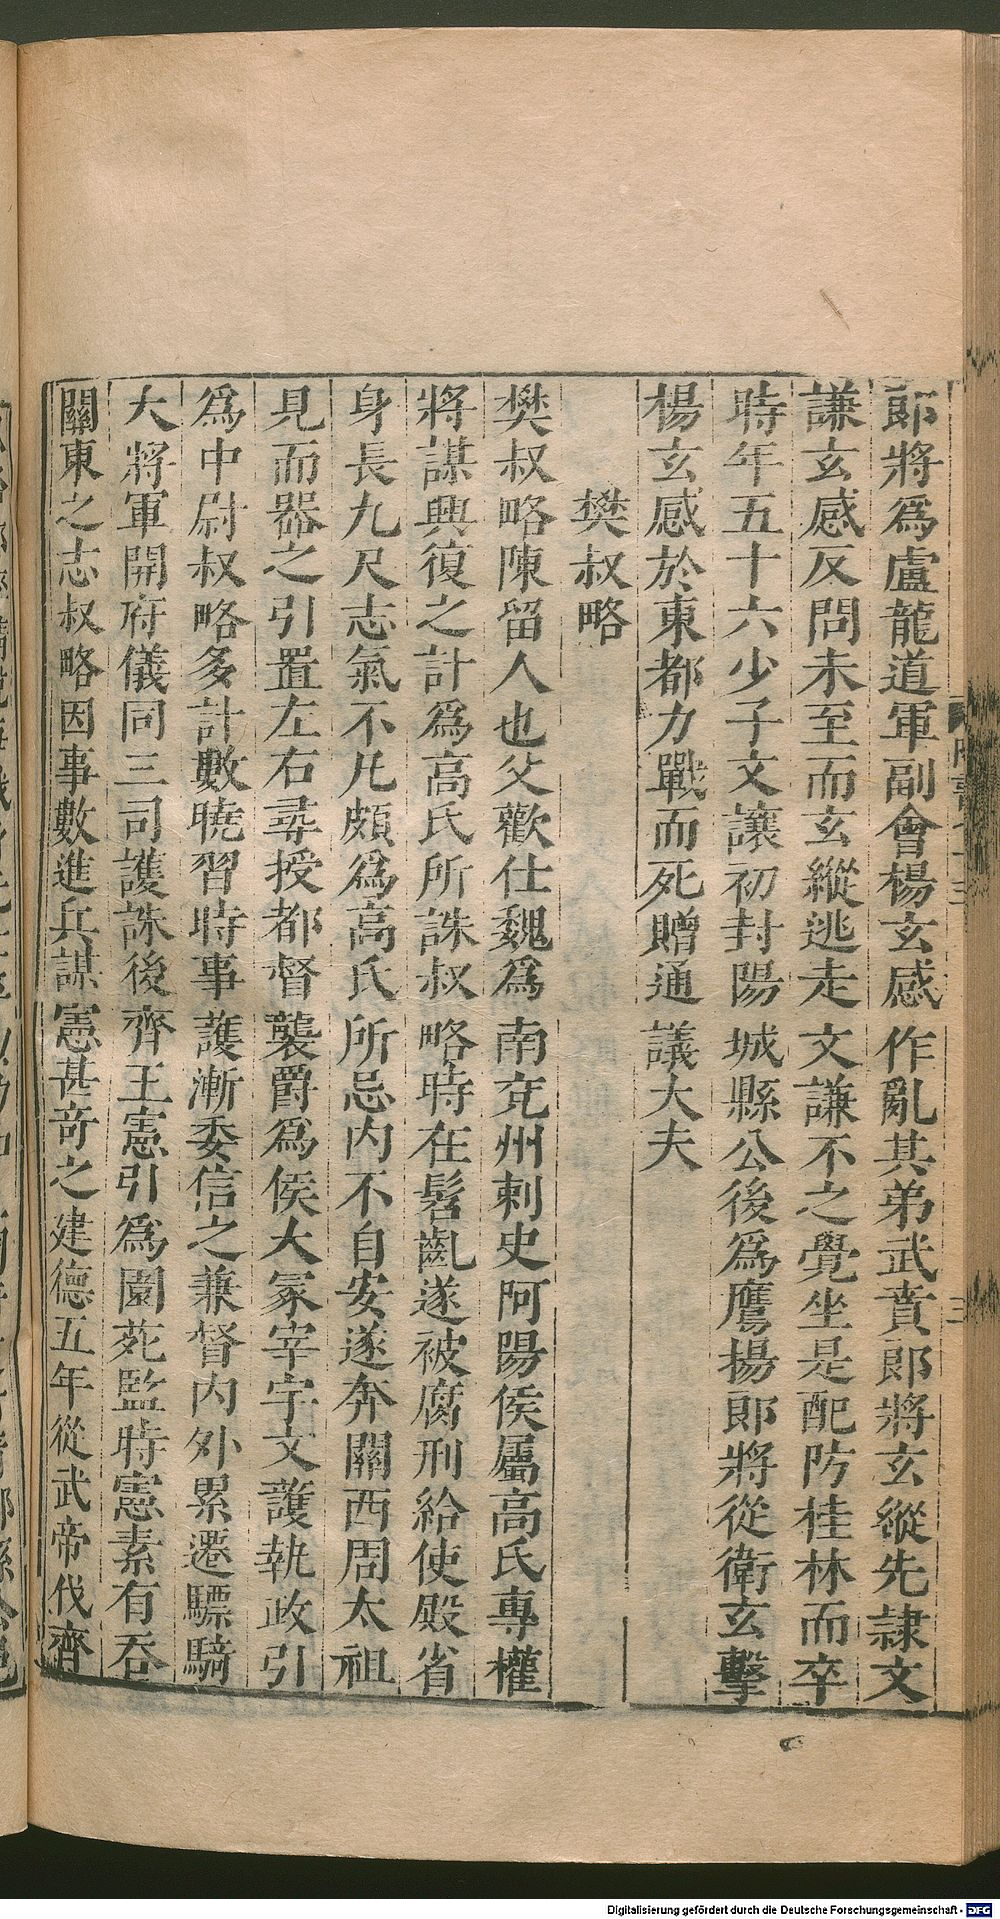 郎將爲盧龍道軍副會楊玄感作亂其弟武賁郎將玄縱先隷文
謙玄感反問未至而玄縱逃走文謙不之覺坐是配防桂林而卒
時年五十六少子文讓初封陽城縣公後爲鷹揚郎將從衛玄擊
楊玄感於東都力戰而死贈通議大夫
樊叔略
樊叔略陳留人也父歡仕魏爲南兗州刺史阿陽侯屬高氏專權
將謀興復之計爲高氏所誅叔略時在髫齓遂被腐刑給使殿省
身長九尺志氣不凡頗爲高氏所忌内不自安遂奔關西周太祖
見而器之引置左右尋授都督襲爵爲侯大冢宰宇文護執政引
爲中尉叔略多計數曉習時事護漸委信之兼督内外累遷驃騎
大將軍開府儀同三司護誅後齊王憲引爲園苑監時憲素有吞
關東之志叔略因事數進兵謀憲甚奇之建德五年從武帝伐齊
Digitalisierung gefördert durch die Deutsche Forschungsgemeinschaft - DFG